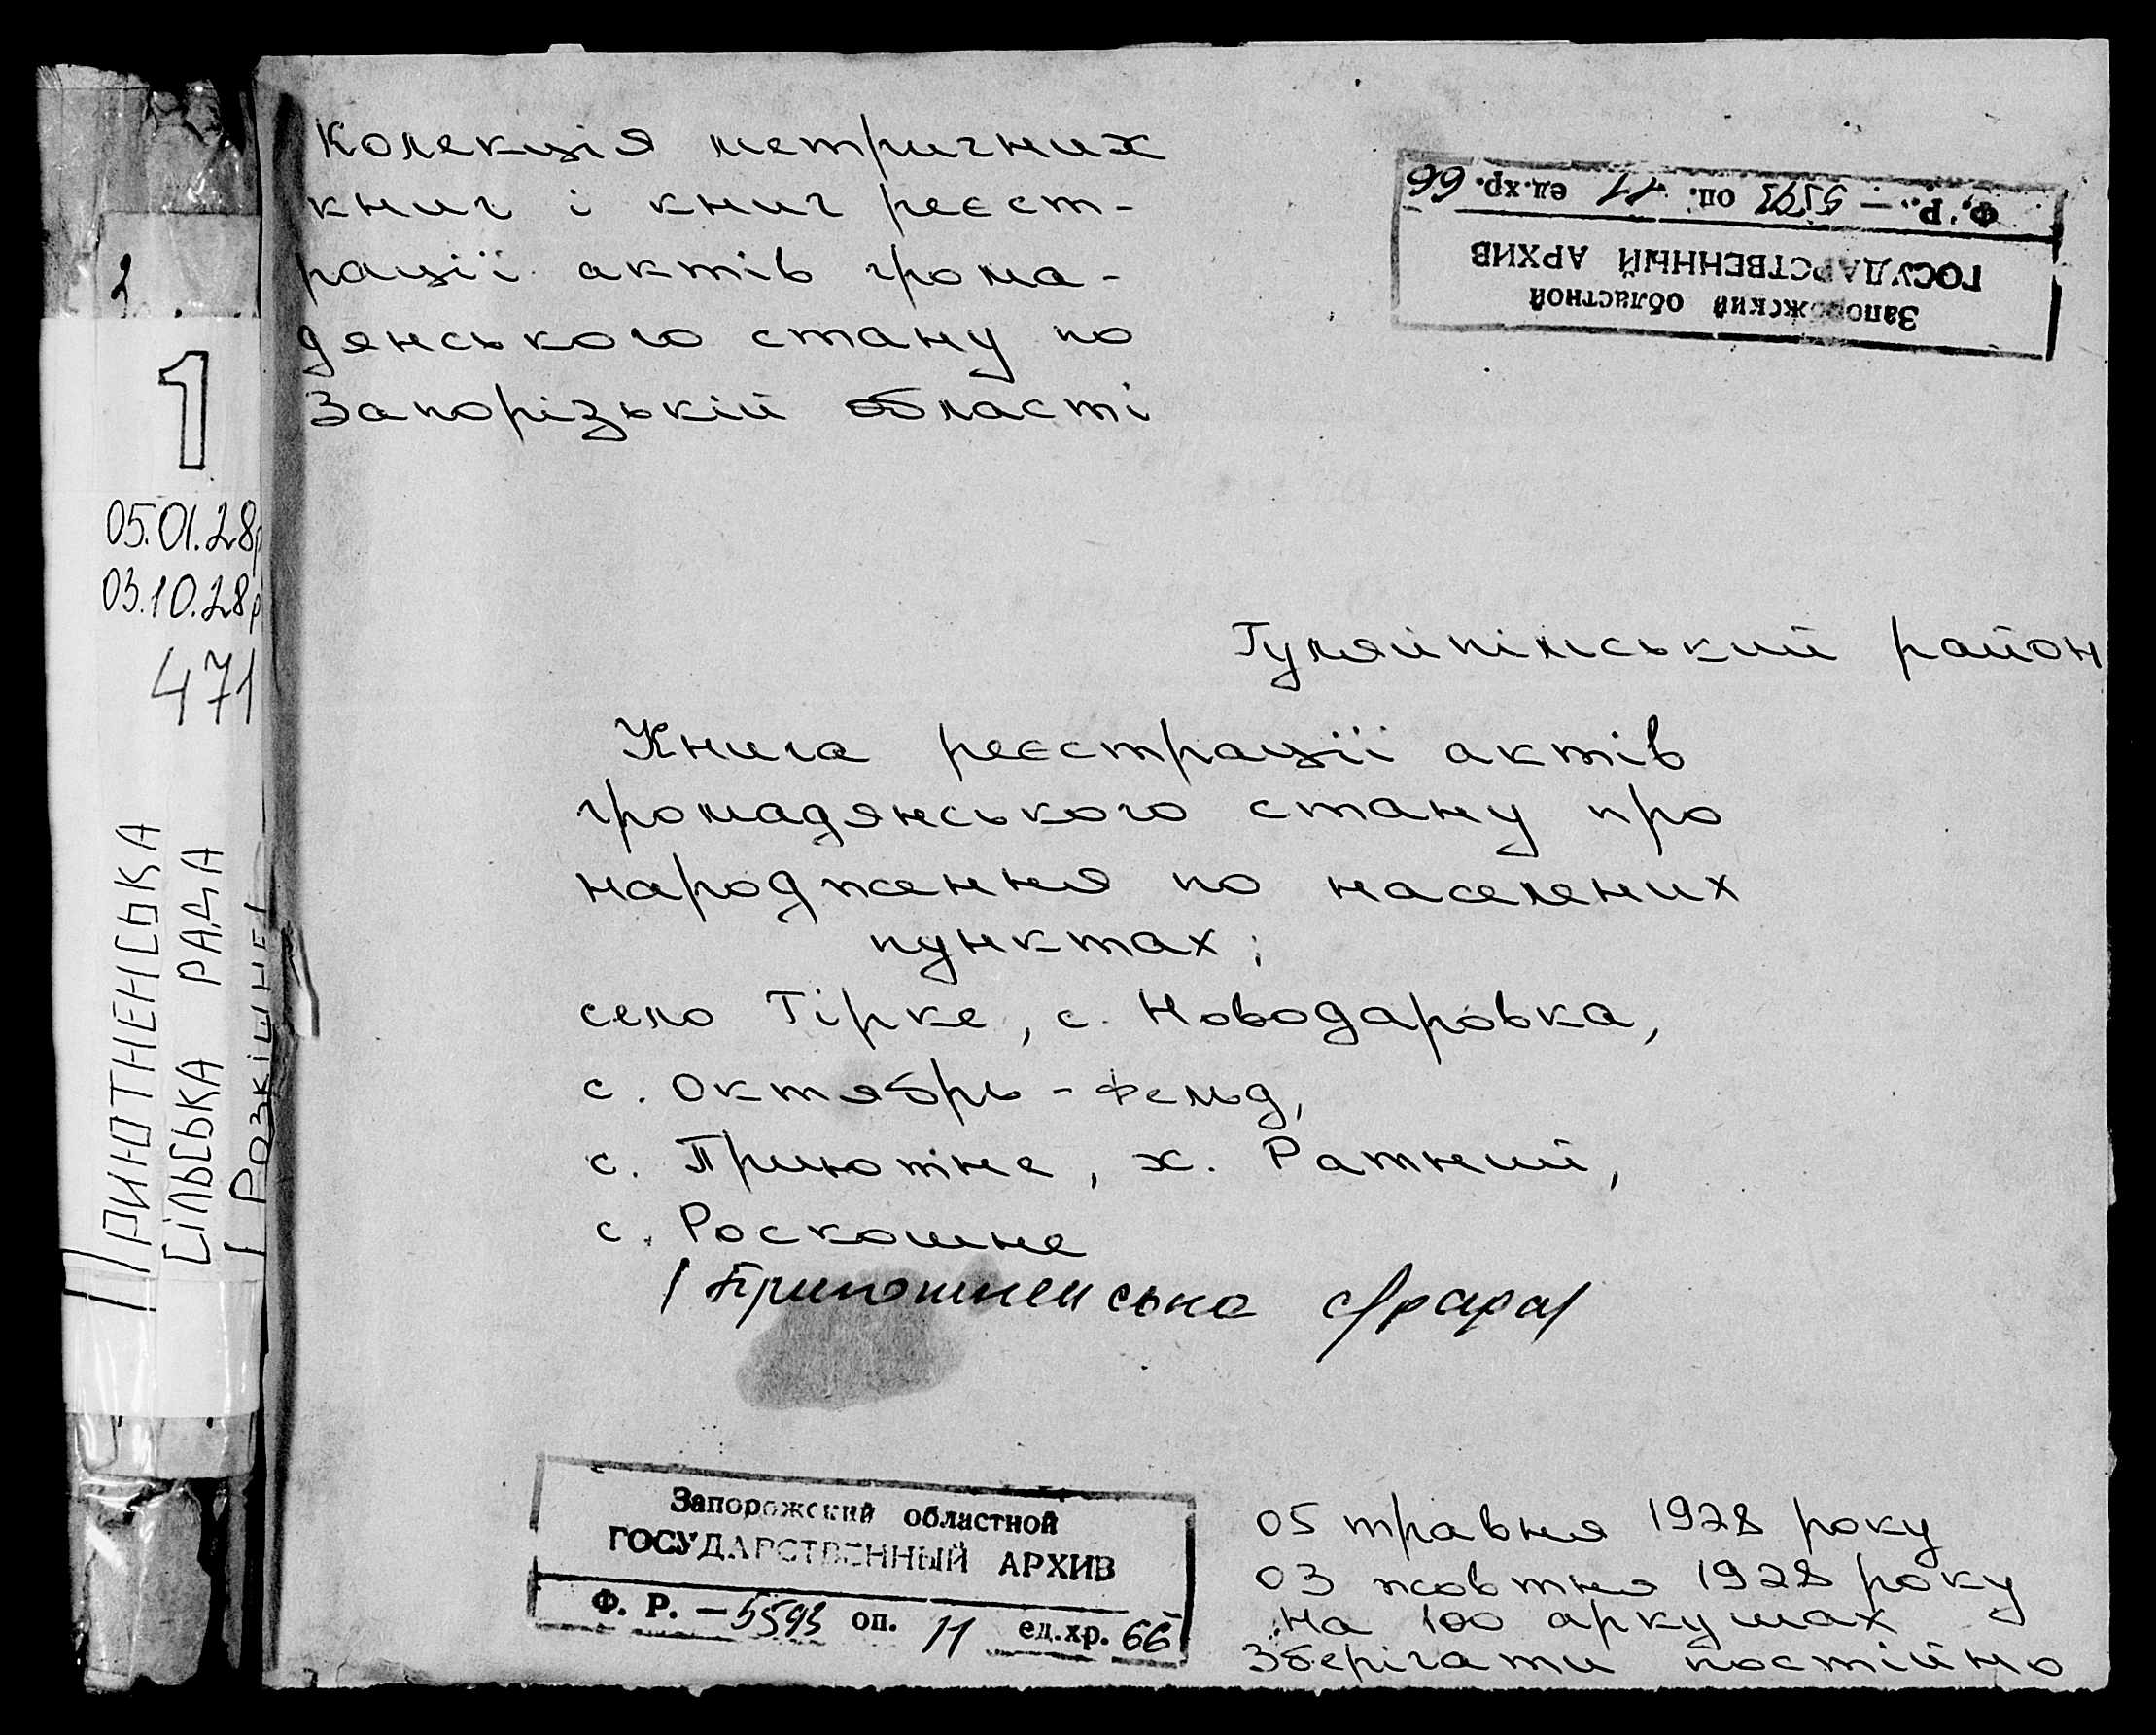 2
1
05.01.28р
03.10.28р
471
ПРИЮТНЕНСЬКА
СІЛЬСЬКА РАДА
/ РОЗКІШНЕ /
Колекція метричних
книг і книг реєст-
рації актів грома-
дянського стану по
Запорізькій області
Запорожский областной
ГОСУДАРСТВЕННЫЙ АРХИВ
Ф. Р. – 5593 оп. 11 ед.хр. 66
Гуляйпільський район
Книга реєстрації актів
громадянського стану про
народження по населених
пунктах:
село Гірке, с. Новодаровка,
с. Октябрь-Фельд,
с. Приютне, х. Ратний,
с. Роскошне
/Приютненська с/рада/
Запорожский областной
ГОСУДАРСТВЕННЫЙ АРХИВ
Ф. Р. – 5593 оп. 11 ед.хр. 66
05 травня 1928 року
03 жовтня 1928 року
на 100 аркушах
Зберігати постійно